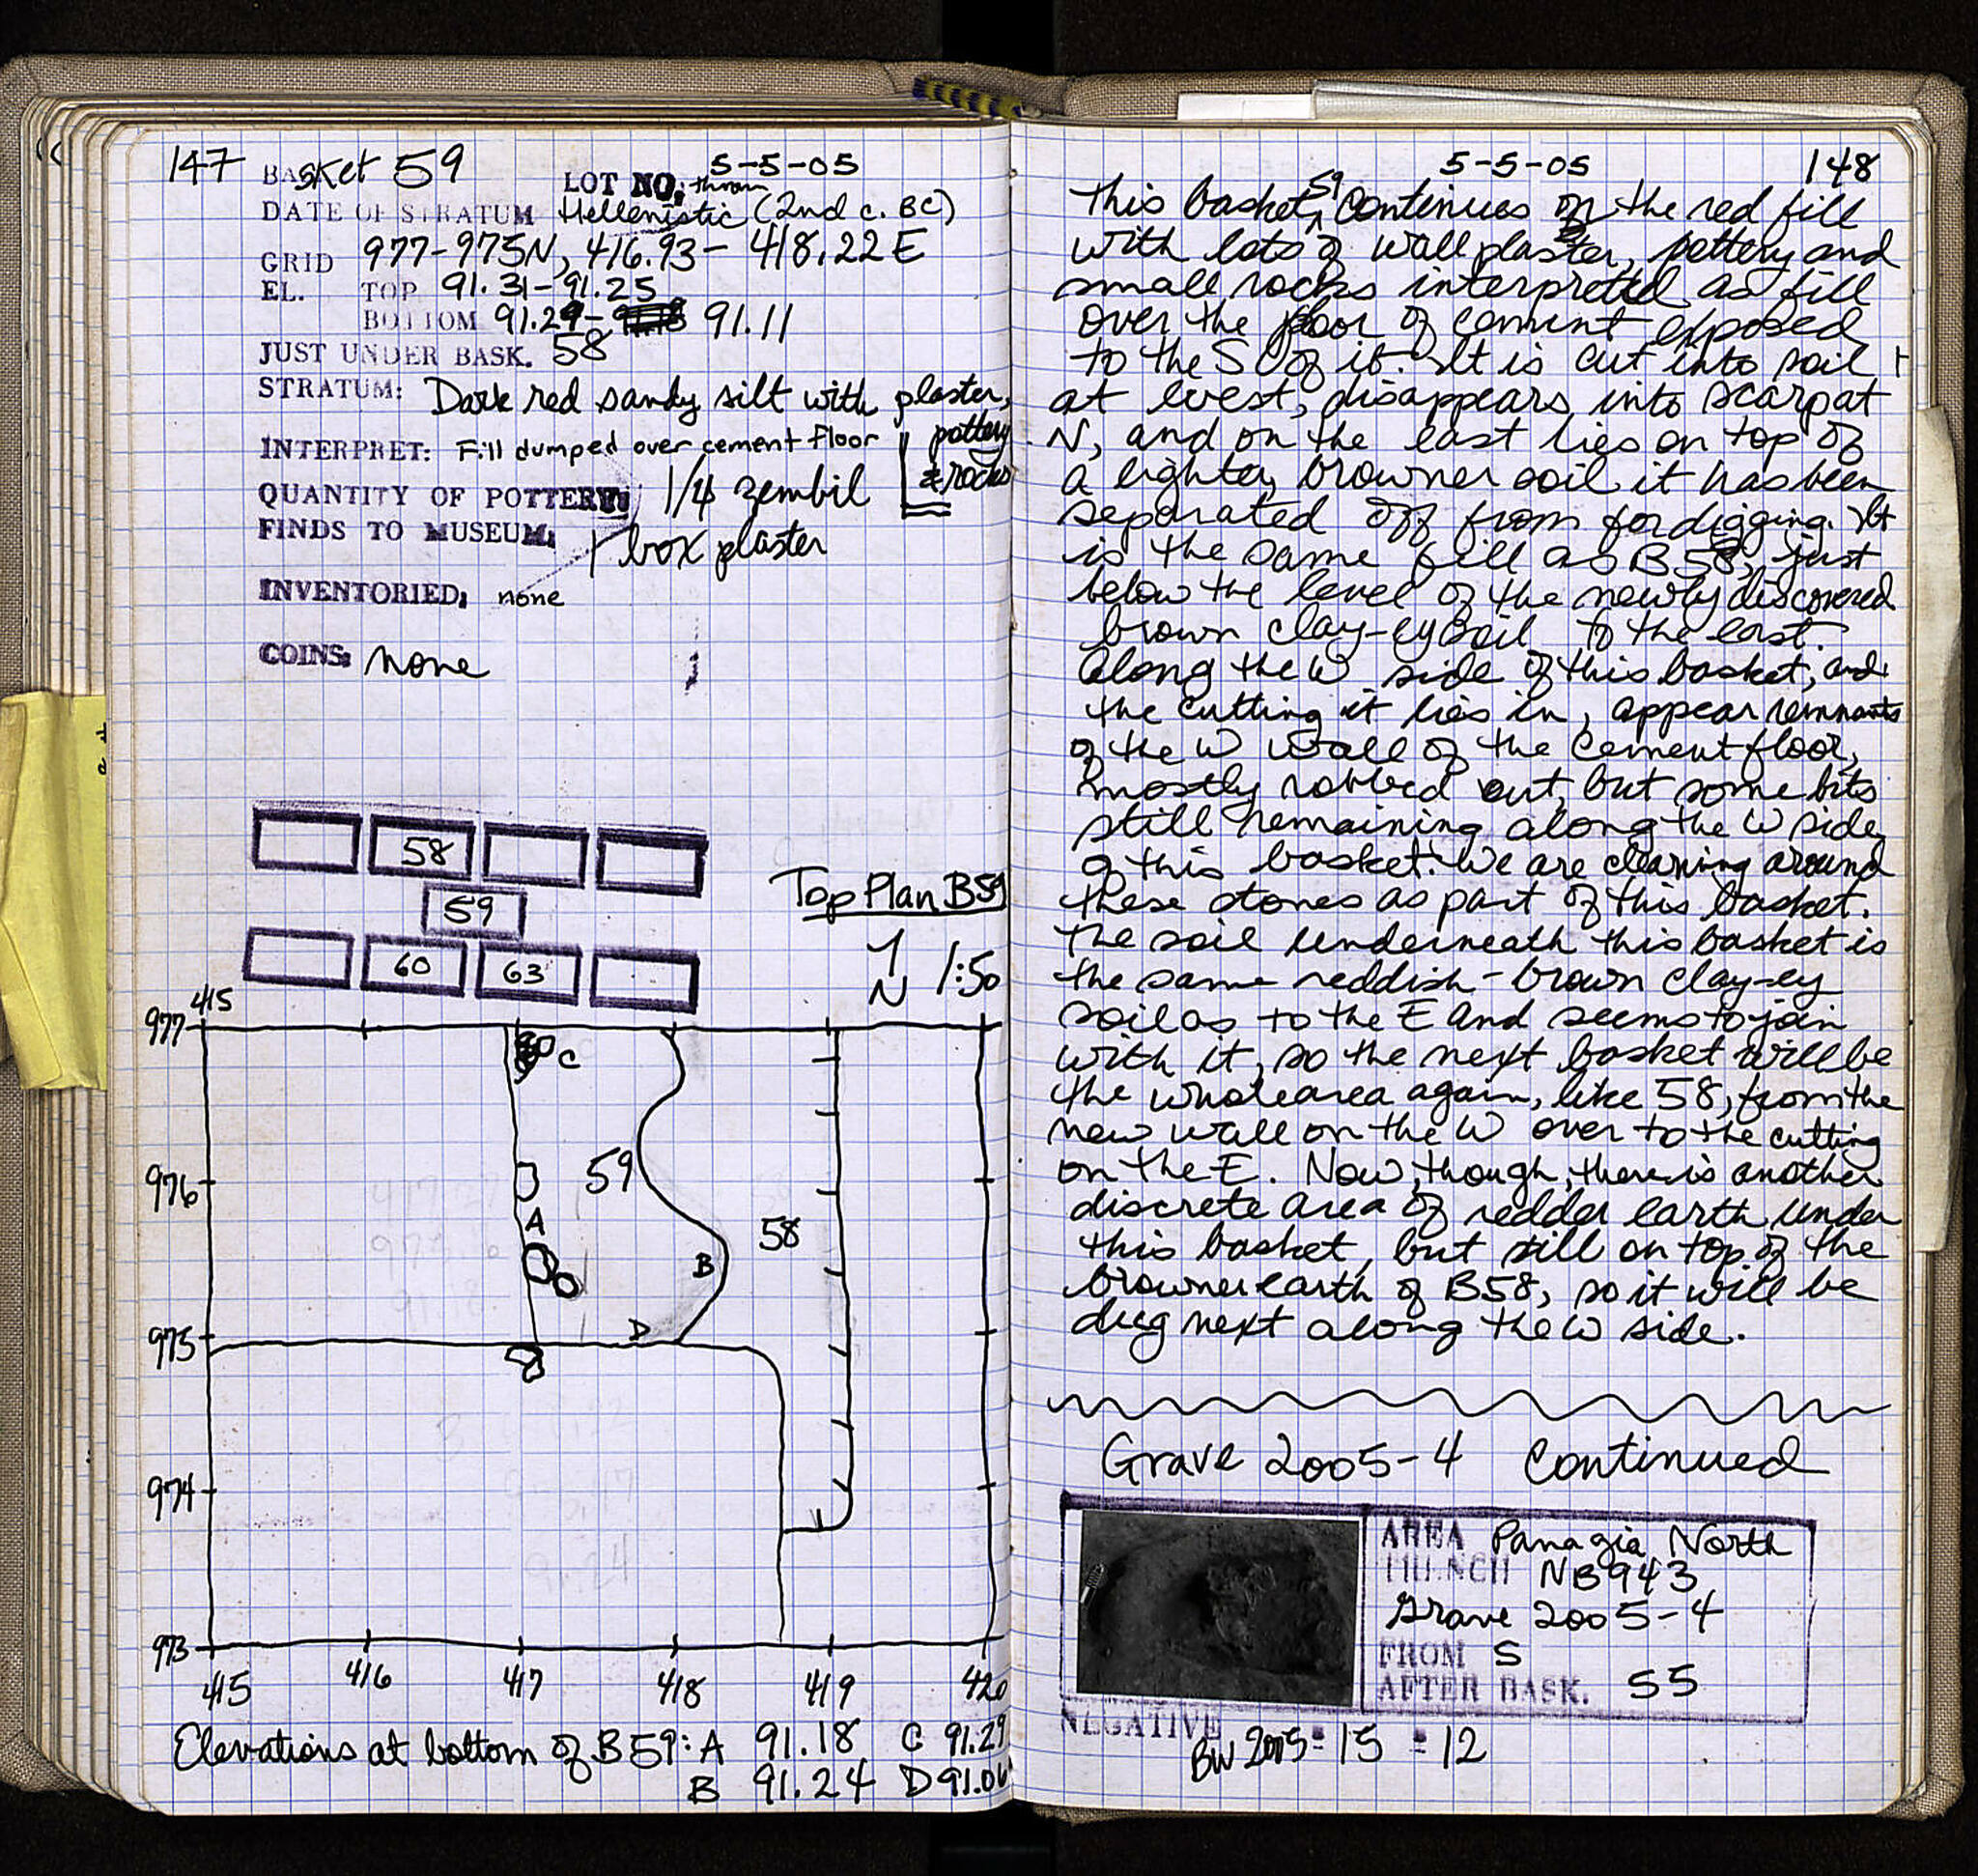 147 Basket 59 5-5-05
LOT NO. thrown
DATE OF STRATUM Hellenistic (2nd c. BC)
GRID 977-975N, 416.93- 418.22 E
EL. TOP 91.31-91.25
BOTTOM 91.29- 91.11
JUST UNDER BASK. 58
STRATUM: Dark red sandy silt with plaster,
pottery
& rocks
INTERPRET: Fill dumped over cement floor
QUANTITY OF POTTERY: 1/4 zembil
FINDS TO MUSEUM: 1 box plaster
INVENTORIED: none
COINS: none
58
59
60 63
Top Plan B59
N 1:50
415
977
C
976
59
A
58
B
975
D
974
973
415 416 417 418 419 420
Elevations at bottom of B59: A 91.18 C 91.29
B 91.24 D 91.06
5-5-05 148
This basket, 59 continues on the red fill
with lots of wall plaster, pottery and
small rocks interpreted as fill
over the floor of cement exposed
to the S of it. It is cut into soil
at west, disappears into scarp at
N, and on the east lies on top of
a lighter, browner soil it has been
separated off from for digging. It
is the same fill as B58, just
below the level of the newly discovered
brown clay-ey soil to the east.
Along the W side of this basket, and
the cutting it lies in, appear remnants
of the W wall of the cement floor,
mostly robbed out, but some bits
still remaining along the W side
of this basket. We are cleaning around
these stones as part of this basket.
The soil underneath this basket is
the same reddish-brown clay-ey
soil as to the E and seems to join
with it, so the next basket will be
the whole area again, like 58, from the
new wall on the W over to the cutting
on the E. Now, though, there is another
discrete area of redder earth under
this basket, but still on top of the
browner earth of B58, so it will be
dug next along the W side.
Grave 2005-4 Continued
AREA Panagia North
TRENCH NB943
Grave 2005-4
FROM S
AFTER BASK. 55
NEGATIVE
BW 2005-15-12